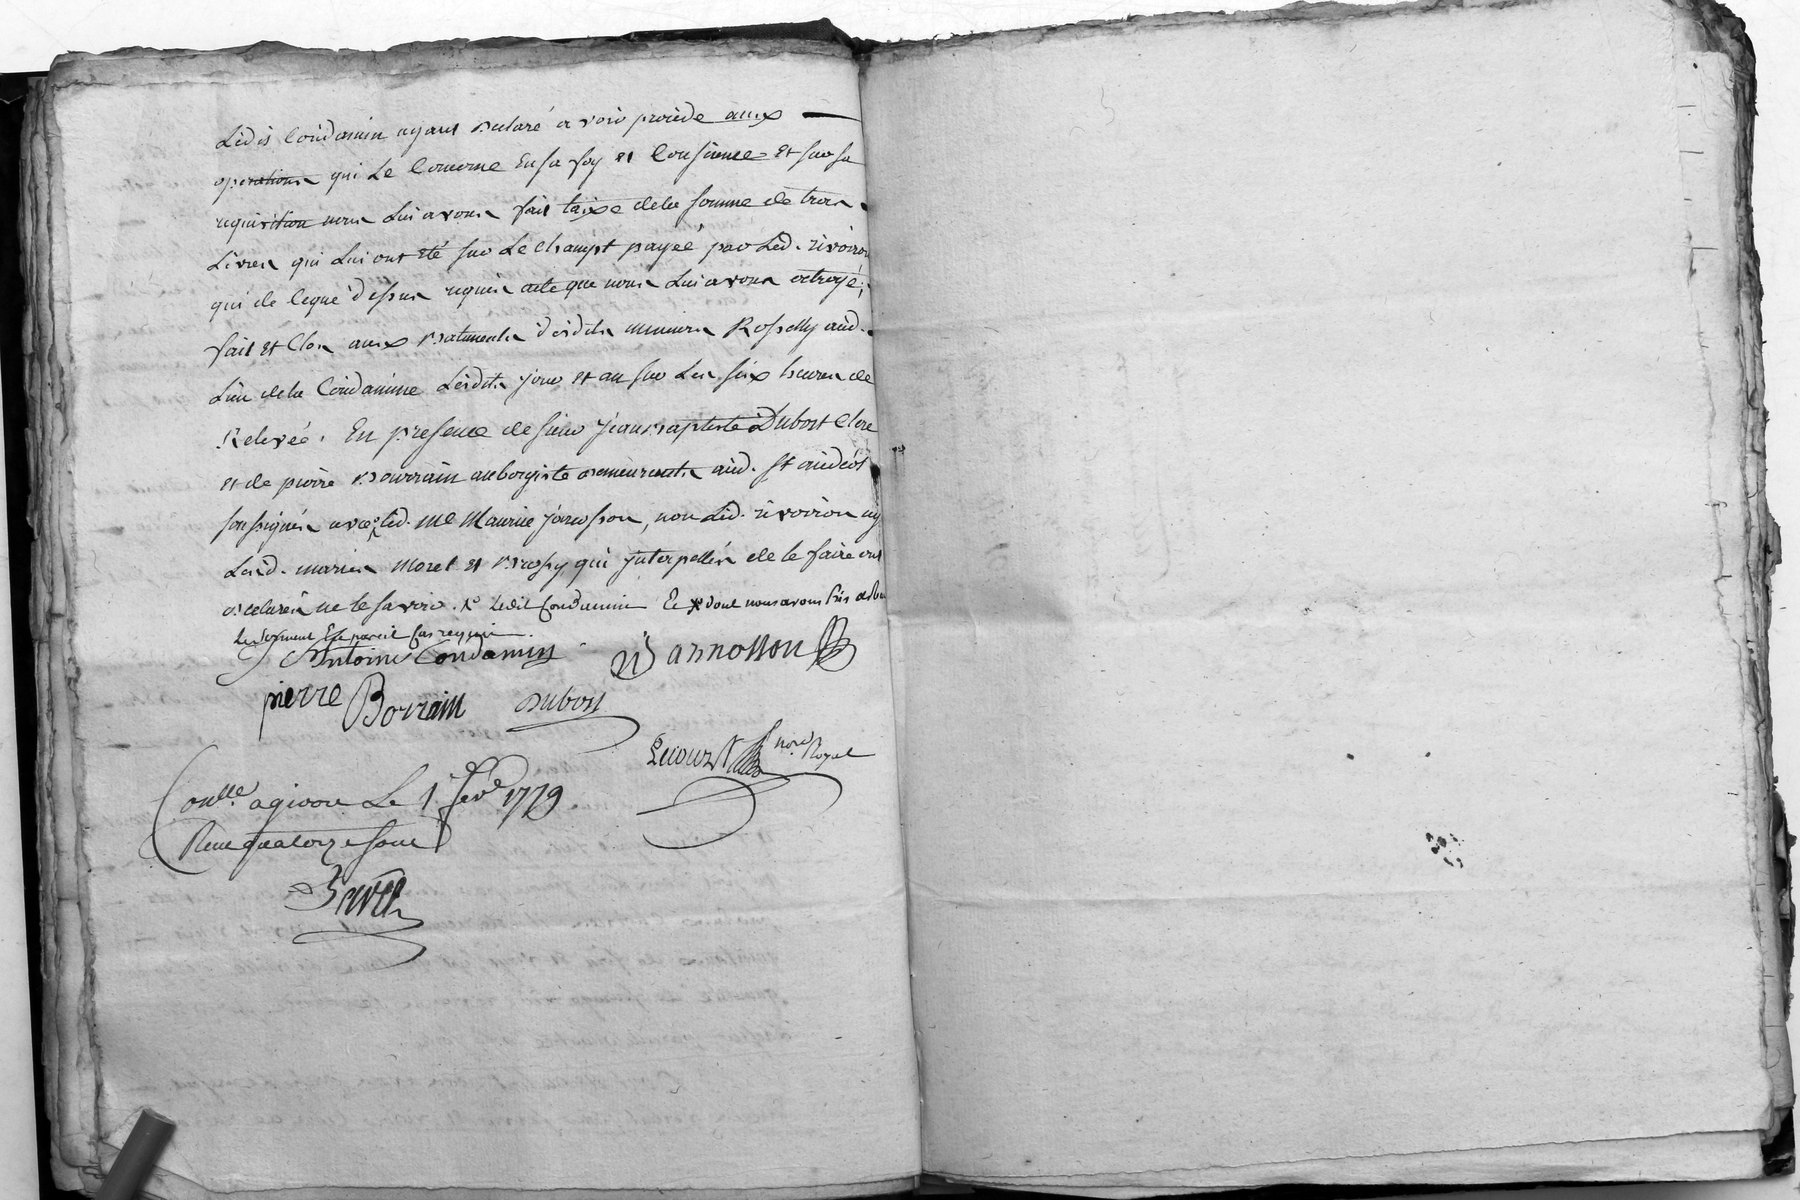 Ledit Condamin ayant declaré avoir procédé aux
operations qui Le Concerne En sa foy et Consience et sur sa
requisition nous Lui avons fait taixe dela somme de trois
Livres qui Lui ont eté sur Le champt payeé par Led. rivoiron
qui de Ceque dessus requis acte que nous Lui avons octroyé;
fait et Clos aux batiments desdits mineurs Rosselly aud.
Lieu dela Condamine Lesdits jour et an sur Les six heures de
Relevée. En presence de sieur jean baptiste Dubost Clerc
et de pierre Bourrain aubergiste demeurants aud. St andeol
soussignés avec Led. Me Maurice jarnosson, non Led. rivoiron ny
Lesd. maries Morel et Brossy qui jnterpellés de le faire ont
declarés ne le savoir. Ledit Condamin Et dont nous avons pris
le serment En pareil Cas requis
Antoine Condamin jarnosson
pierre Borrain Dubost
Lecourt nore Royal
Conlle. a givors Le 1 fevr 1779
Reçu quatorze sous